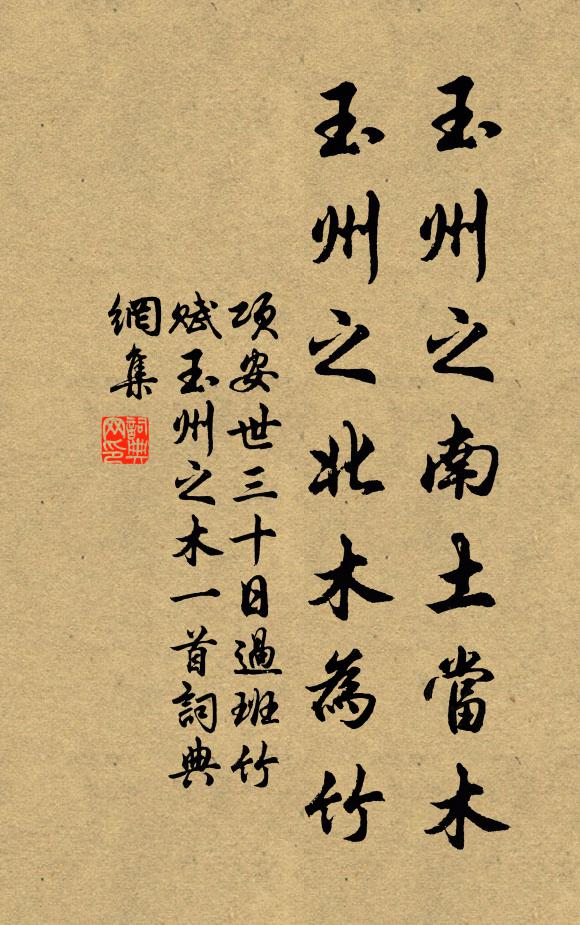 玉州之南土當木
玉州之北木為竹
項安世三十日過班竹
賦玉州之木一首詞典
網集
詞典
网印